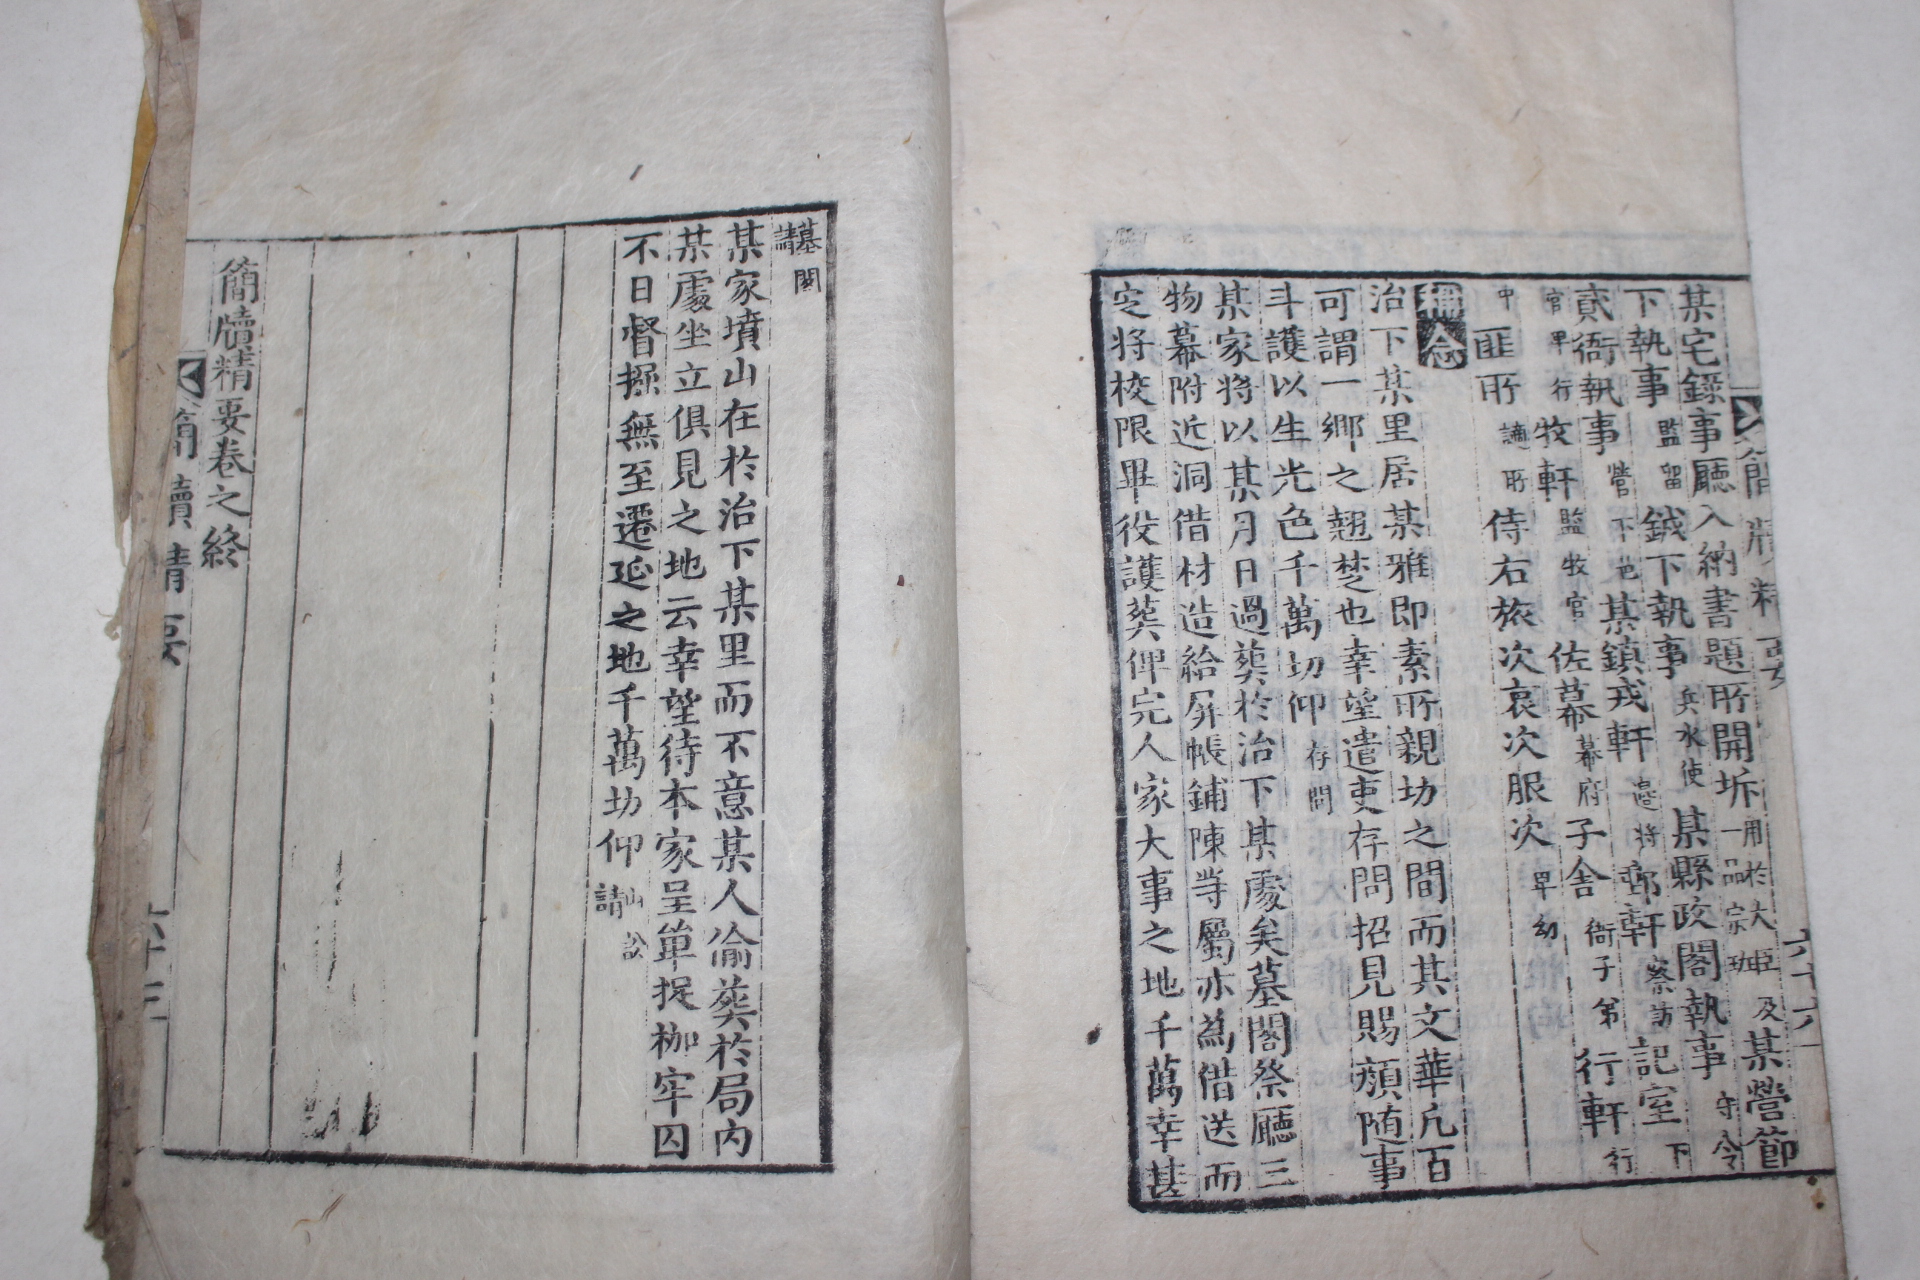 簡牘精要
六十六
某宅錄事廳入納書題所開坼用於大臣及一品宗班某營節
下執事監留鉞下執事兵水使某縣政閣執事守令
貳衙執事營下邑某鎮戎軒邊將郵軒察訪記室下
官卑行牧軒監牧官佐幕幕府子舍衙子弟行軒行
中匪所謫所侍右旅次哀次服次卑幼
治下某里居某雅即素所親切之間而其文華凡百
可謂一鄉之翹楚也幸望遣吏存問招見賜顏随事
斗護以生光色千萬切仰存問
某家將以某月日過葬於治下某處矣墓閣祭廳三
物幕附近洞借材造給屏帳鋪陳等屬亦爲借送而
定將校限畢役護葬俾完人家大事之地千萬幸甚
墓閣請
某家墳山在於治下某里而不意某人偷葬於局內
某處坐立俱見之地云幸望待本家呈單捉枷牢囚
不日督掘無至遷延之地千萬切仰山訟請
簡牘精要卷之終
簡牘精要